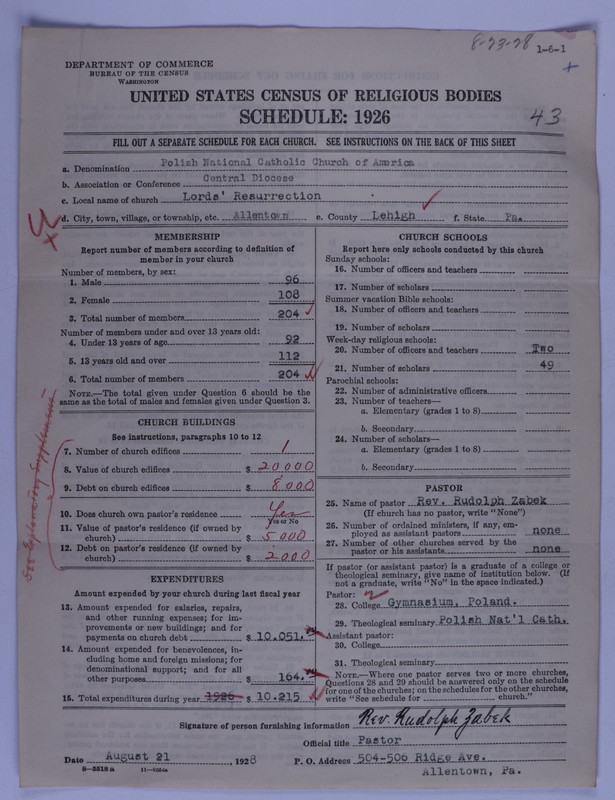 8-23-28
1-6-1
+
DEPARTMENT OF COMMERCE
BUREAU OF THE CENSUS
WASHINGTON
UNITED STATES CENSUS OF RELIGIOUS BODIES
SCHEDULE: 1926
43
FILL OUT A SEPARATE SCHEDULE FOR EACH CHURCH. SEE INSTRUCTIONS ON THE BACK OF THIS SHEET
a. Denomination Polish National Catholic Church of America
b. Association or Conference Central Diocese
c. Local name of church Lords' Resurrection
d. City, town, village, or township, etc. Allentown e. County Lehigh f. State Pa.
MEMBERSHIP
Report number of members according to definition of
member in your church
Number of members, by sex:
1. Male 96
2. Female 108
3. Total number of members 204
Number of members under and over 13 years old:
4. Under 13 years of age 92
5. 13 years old and over 112
6. Total number of members 204
NOTE.—The total given under Question 6 should be the
same as the total of males and females given under Question 3.
CHURCH BUILDINGS
See instructions, paragraphs 10 to 12
7. Number of church edifices 1
8. Value of church edifices $ 20000
9. Debt on church edifices $ 8000
10. Does church own pastor's residence Yes
Yes or No
11. Value of pastor's residence (if owned by
church) $ 5000
12. Debt on pastor's residence (if owned by
church) $ 2000
See Explanatory Supplement
EXPENDITURES
Amount expended by your church during last fiscal year
13. Amount expended for salaries, repairs,
and other running expenses; for im-
provements or new buildings; and for
payments on church debt $ 10.051.
14. Amount expended for benevolences, in-
cluding home and foreign missions; for
denominational support; and for all
other purposes $ 164.
15. Total expenditures during year 1926 $ 10.215
CHURCH SCHOOLS
Report here only schools conducted by this church
Sunday schools:
16. Number of officers and teachers
17. Number of scholars
Summer vacation Bible schools:
18. Number of officers and teachers
19. Number of scholars
Week-day religious schools:
20. Number of officers and teachers Two
21. Number of scholars 49
Parochial schools:
22. Number of administrative officers
23. Number of teachers—
a. Elementary (grades 1 to 8)
b. Secondary
24. Number of scholars—
a. Elementary (grades 1 to 8)
b. Secondary
PASTOR
25. Name of pastor Rev. Rudolph Zabek
(If church has no pastor, write "None")
26. Number of ordained ministers, if any, em-
ployed as assistant pastors none
27. Number of other churches served by the
pastor or his assistants none
If pastor (or assistant pastor) is a graduate of a college or
theological seminary, give name of institution below. (If
not a graduate, write "No" in the space indicated.)
Pastor:
28. College Gymnasium, Poland.
29. Theological seminary Polish Nat'l Cath.
Assistant pastor:
30. College
31. Theological seminary
NOTE.—Where one pastor serves two or more churches,
Questions 28 and 29 should be answered only on the schedule
for one of the churches; on the schedules for the other churches,
write "See schedule for church."
Signature of person furnishing information Rev. Rudolph Zabek
Official title Pastor
Date August 21, 1928 P. O. Address 504-506 Ridge Ave.
Allentown, Pa.